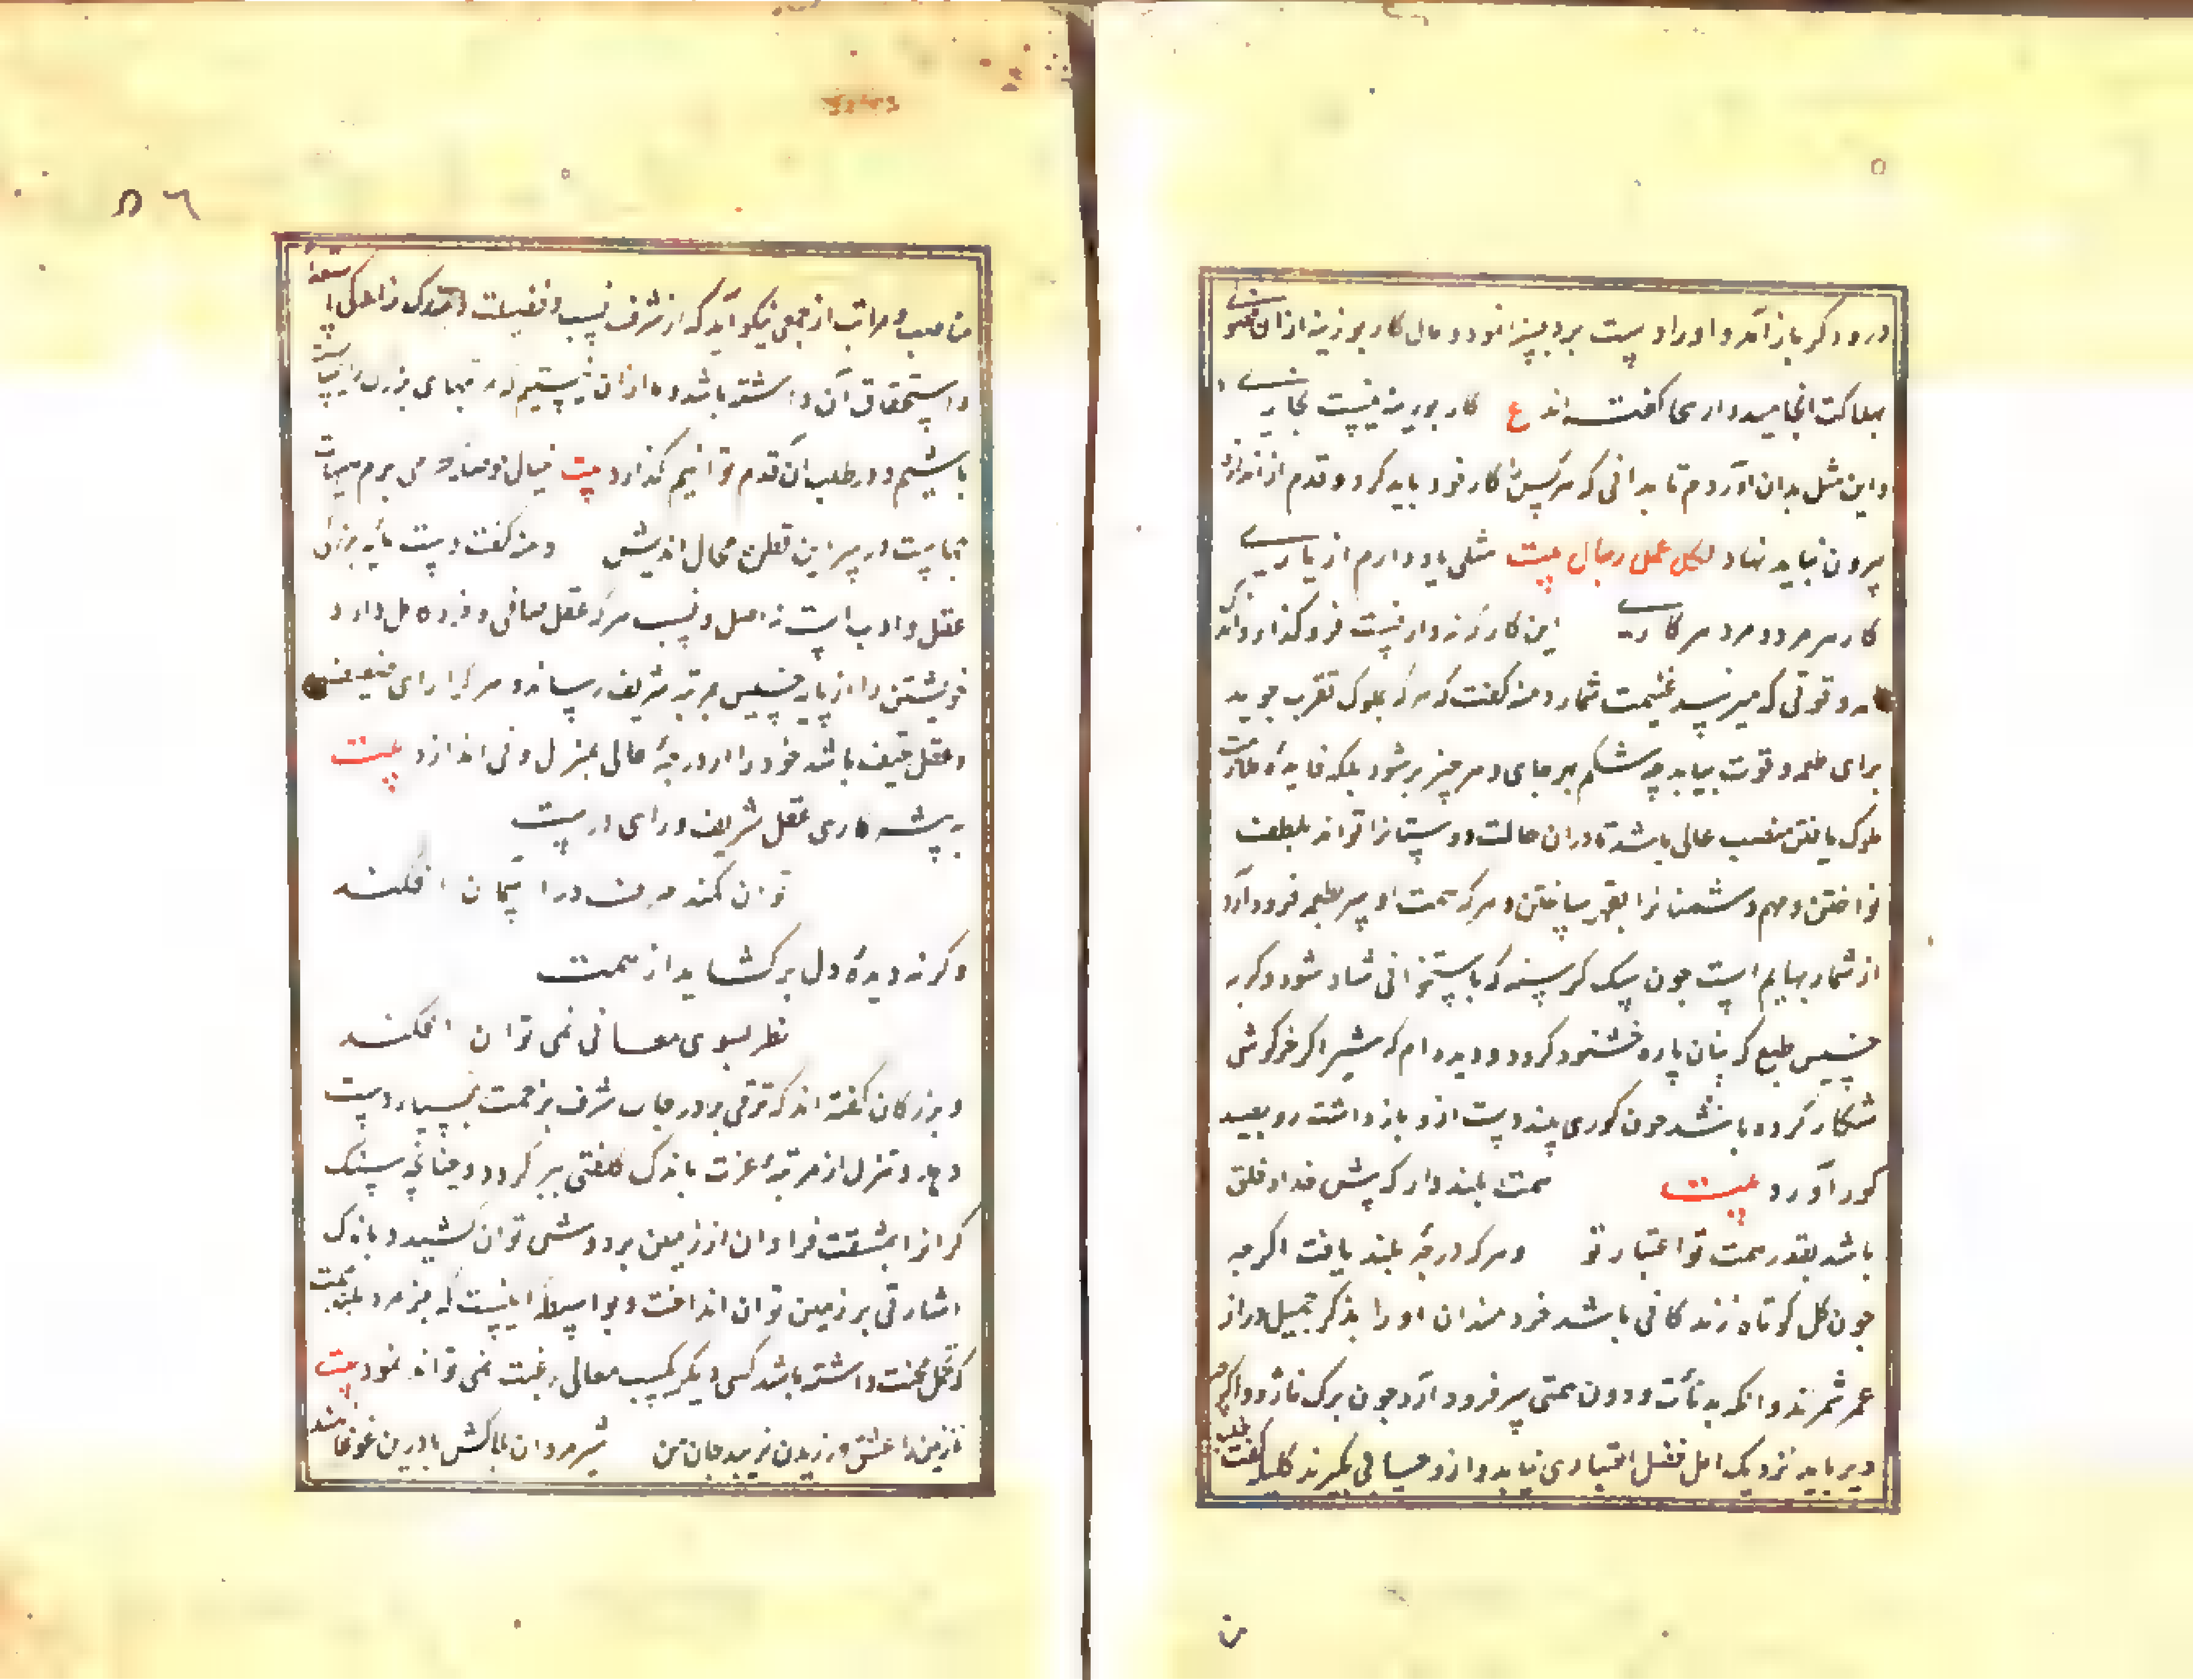 درودگر باز آمد و اورا دست برد بسزا نمود و مال کار بوزینه از آن
بهلاکت انجامید و از اینجا گفته‌اند ع کار بوزینه نیست نجاری
و این مثل بدان آوردم تا بدانی که هر کس کار خود باید کرد و قدم از اندازه
بیرون نباید نهاد لکل عمل رجال بیت مثلی یاد دارم از یاری
کار هر مرد و مرد هر کاری این کار که نه کار تست فرو گذار و اندک
طعمه و قوتی که میرسد غنیمت شمار دمنه گفت که هر که بملوک تقرب جوید
برای طعمه و قوت نباید چه شکم بهر جای و بهر چیز پر شود بلکه فایده ملازمت
ملوک یافتن منصب عالی باشد تا در آن حالت دوستانرا تواند بلطف
نواختن و مهم دشمنانرا بقهر ساختن و هر که همت او بسر طعمه فرود آرد
از شمار بهایم است چون سک گرسنه که باستخوانی شاد شود و گربه
خسیس طبع که بنان پاره خشنود گردد و دیده‌ام که شیر اگر خرگوش
شکار کرده باشد چون گوری بیند دست ازو باز داشته رو بصید
گور آورد بیت همت بلند دار که پیش خدا و خلق
باشد بقدر همت تو اعتبار تو و هر که درجهٔ بلند یافت اگرچه
چون گل کوتاه زندگانی باشد خردمندان او را بذکر جمیل دراز
عمر شمرند و آنکه بدنائت و دون همتی سر فرود آرد چون برگ ناژو اگرچه
دیر پاید نزدیک اهل فضل اعتباری نیابد و ازو حسابی نگیرند کلیله گفت
۵۶
مناصب و مراتب از جمعی نیکو آید که از شرف نسب و فضیلت و بزرگ زادگی استعداد
و استحقاق آن داشته باشد و ما از آن نیستیم که مرتبهای بزرگ را شایسته
باشیم و در طلب آن قدم توانیم گذارد بیت خیال حوصله بحر می پزم هیهات
چهاست در سر این قطره محال اندیش دمنه گفت دست مایه بزرگی
عقل و ادب است نه اصل و نسب هر که عقل صافی و خرد کامل دارد
خویشتن را از پایه خسیس بمرتبه شریف رساند و هر کرا رای ضعیف
و عقل خفیف باشد خود را از درجهٔ عالی بمنزل دنی اندازد بیت
به پشت کاری عقل شریف و رای درست
توان کمند تصرف در آسمان افکند
و گر نه دیدهٔ دل برگشاید از همت
نظر بسوی معانی نمی توان افکند
و بزرگان گفته‌اند که ترقی بر درجات شرف بزحمت بسیار دست
دهد و تنزل از مرتبهٔ عزت باندک کلفتی میسر گردد چنانچه سنک
گرانرا بمشقت فراوان از زمین بر دوش توان کشید و باندک
اشارتی بر زمین توان انداخت و بواسطه اینست که جز مرد بلند همت
که تحمل محنت داشته باشد کسی دیگر بکسب معالی رغبت نمی تواند نمود بیت
نازنین را عشق ورزیدن نزیبد جان من شیر مردان بلاکش پا درین غوغا نهند